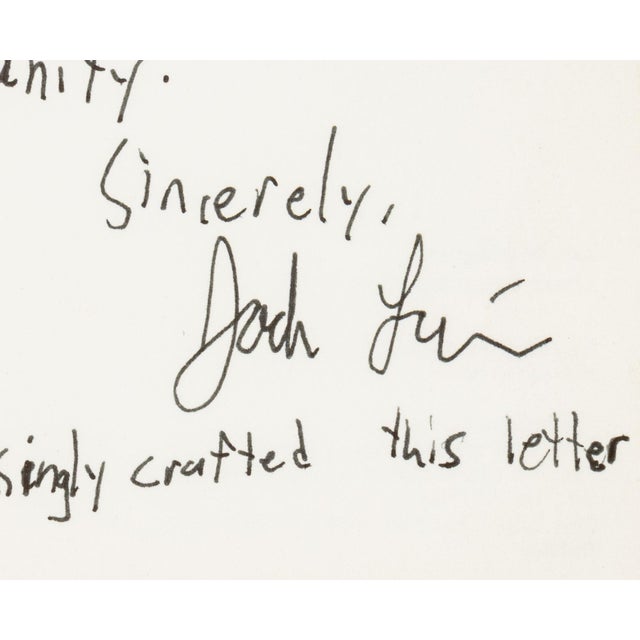 unity.
Sincerely,
singly crafted this letter